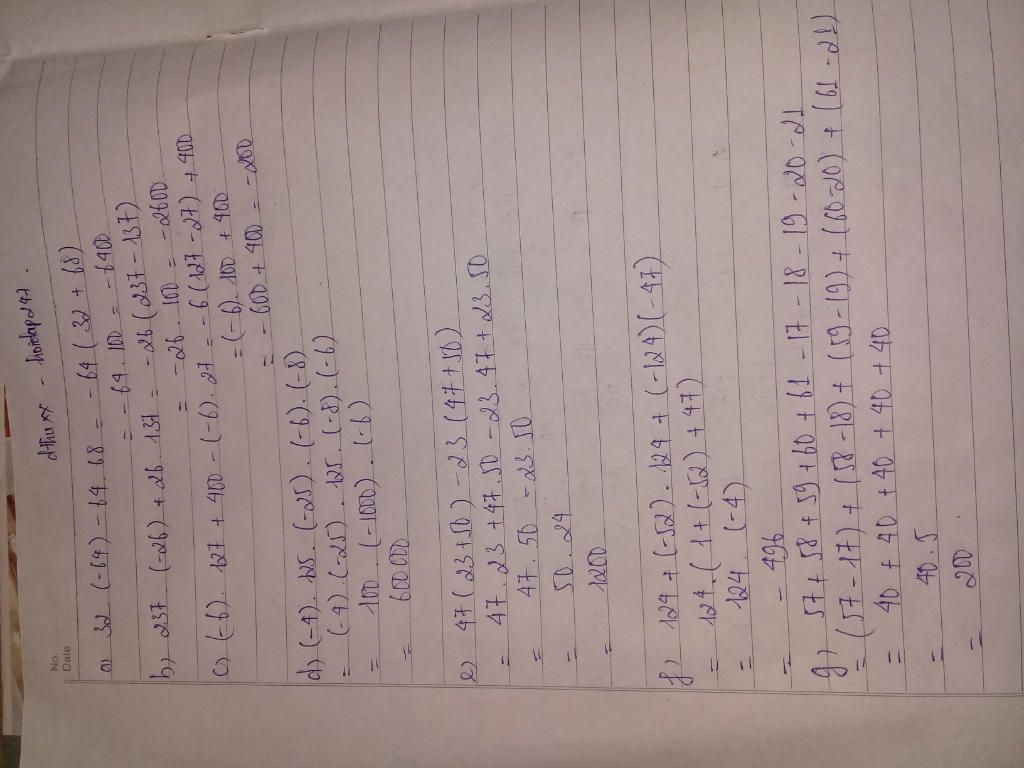 No.
Date
dthu xx - hoidap247.
a) 32 (-64) - 64 . 68 = - 64 ( 32 + 68)
= - 64 . 100 = - 6400
b) 237 . (-26) + 26 . 137 = - 26 ( 237 - 137)
= - 26 . 100 = - 2600
c) (-6) . 127 + 400 - (-6) . 27 = - 6 (127 - 27) + 400
= (-6) . 100 + 400
= - 600 + 400 = - 200
d) (-4) . 125 . (-25) . (-6) . (-8)
= (-4) . (-25) . 125 . (-8) . (-6)
= 100 . (-1000) . (-6)
= 600 000
e) 47 ( 23 + 50 ) - 23 ( 47 + 50 )
= 47 . 23 + 47 . 50 - 23 . 47 + 23 . 50
= 47 . 50 - 23 . 50
= 50 . 24
= 1200
f) 124 + (-52) . 124 + (-124) (-47)
= 124 . ( 1 + (-52) + 47 )
= 124 . (-4)
= - 496
g) 57 + 58 + 59 + 60 + 61 - 17 - 18 - 19 - 20 - 21
= (57 - 17) + (58 - 18) + (59 - 19) + (60 - 20) + (61 - 21)
= 40 + 40 + 40 + 40 + 40
= 40 . 5
= 200 .